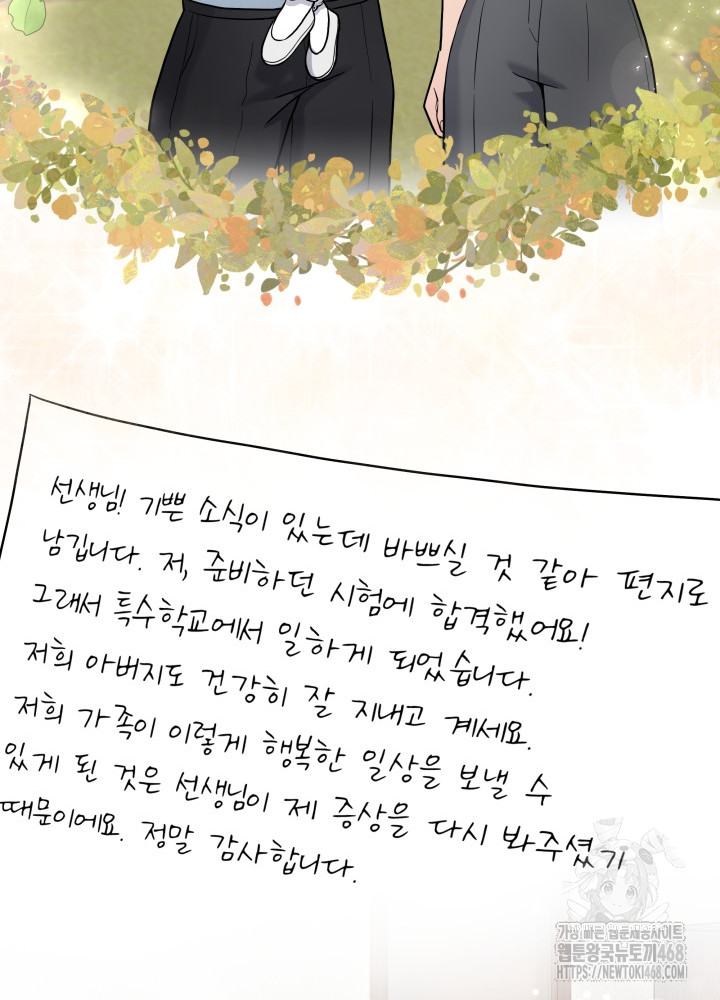 선생님! 기쁜 소식이 있는데 바쁘실 것 같아 편지로
남깁니다. 저, 준비하던 시험에 합격했어요!
그래서 특수학교에서 일하게 되었습니다.
저희 아버지도 건강히 잘 지내고 계세요.
저희 가족이 이렇게 행복한 일상을 보낼 수
있게 된 것은 선생님이 제 증상을 다시 봐주셨기
때문이에요. 정말 감사합니다.
가장 빠른 웹툰제공사이트
웹툰왕국뉴토끼468
HTTPS://NEWTOKI468.COM